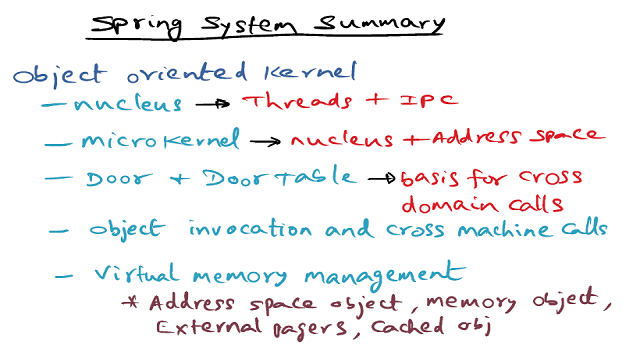 Spring System Summary
Object oriented kernel
- nucleus → Threads + IPC
- microkernel → nucleus + Address space
- Door + Door Table → basis for cross
domain calls
- object invocation and cross machine calls
- Virtual memory management
* Address space object, memory object,
External pagers, Cached obj